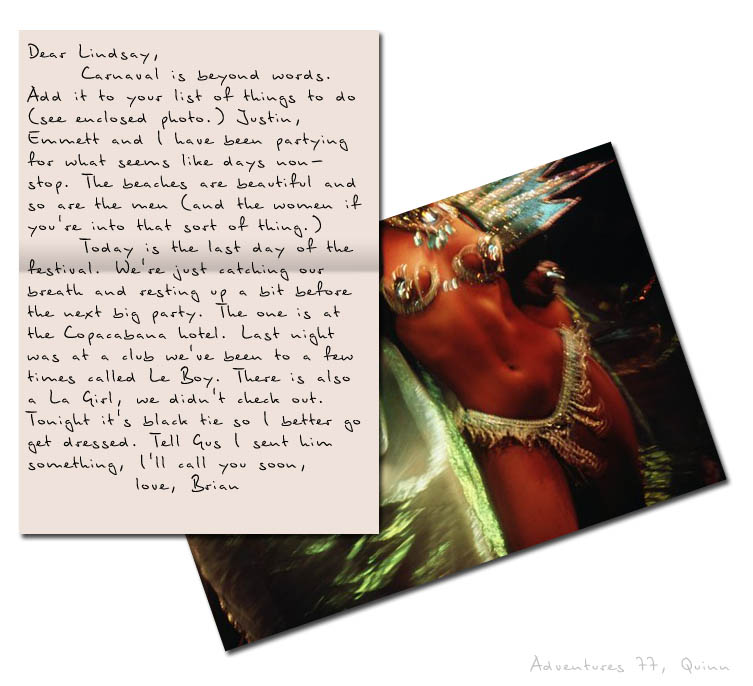 Dear Lindsay,
Carnaval is beyond words.
Add it to your list of things to do
(see enclosed photo.) Justin,
Emmett and I have been partying
for what seems like days non-
stop. The beaches are beautiful and
so are the men (and the women if
you're into that sort of thing.)
Today is the last day of the
festival. We're just catching our
breath and resting up a bit before
the next big party. The one is at
the Copacabana hotel. Last night
was at a club we've been to a few
times called Le Boy. There is also
a La Girl, we didn't check out.
Tonight it's black tie so I better go
get dressed. Tell Gus I sent him
something, I'll call you soon,
love, Brian
Adventures 77, Quinn